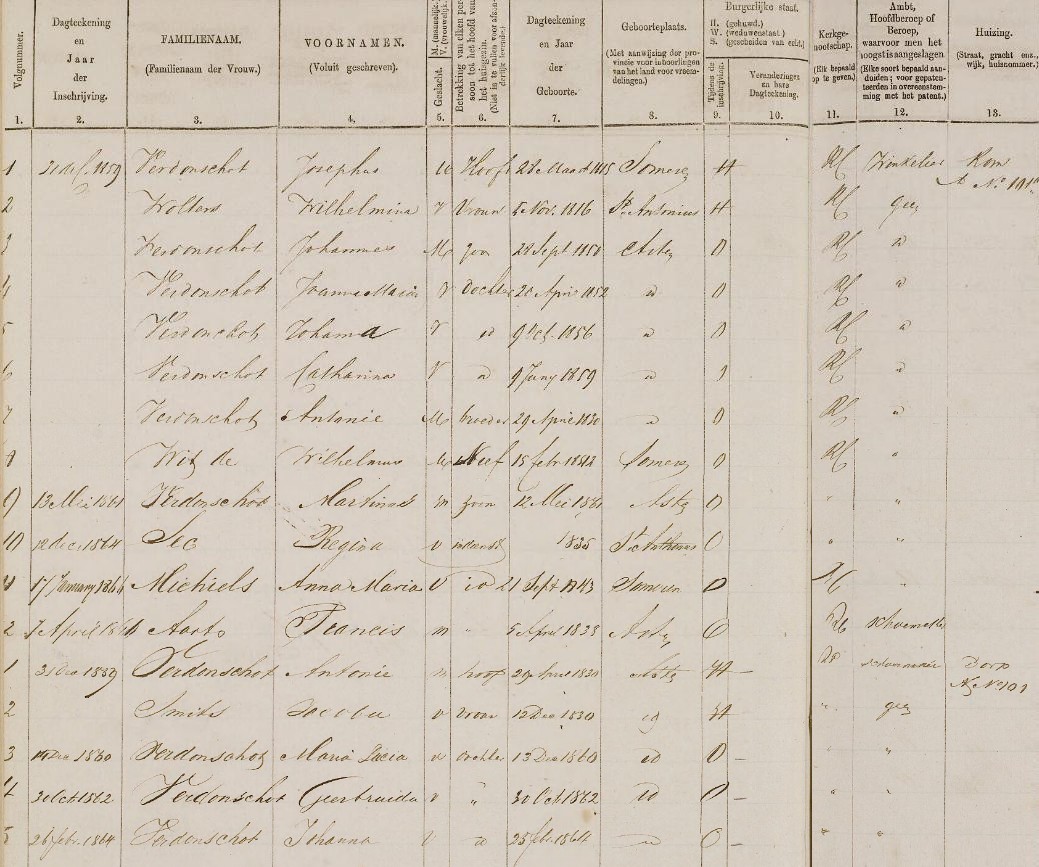 Volgnummer.
Dagteekening en Jaar der Inschrijving.
FAMILIENAAM. (Familienaam der Vrouw.)
VOORNAMEN. (Voluit geschreven.)
Geslacht. M. (mannelijk.) V. (vrouwelijk.)
Betrekking van elken persoon tot het hoofd van het huisgezin.
Dagteekening en Jaar der Geboorte.
Geboorteplaats. (Met aanwijzing der provincie voor inboorlingen van het land voor vreemdelingen.)
Burgerlijke staat.
H. (gehuwd.) W. (weduwenstaat) S. (gescheiden van echt.)
Tijdens de inschrijving.
Veranderingen en hare Dagteekening.
Kerkgenootschap. (Elk bepaald op te geven.)
Ambt, Hoofdberoep of Beroep, waarvoor men het hoogst is aangeslagen. (Elke soort bepaald aanduiden; voor gepatenteerden in overeenstemming met het patent.)
Huizing. (Straat, gracht enz., wijk, huisnommer.)
1. 2. 3. 4. 5. 6. 7. 8. 9. 10. 11. 12. 13.
1 1859 Verdonschot Josephus M Hoofd 28 Maart 1815 Someren H RC Winkelier Kom
A No 101
2 Wolters Wilhelmina V Vrouw Nov. 1816 St. Antonius H RC geen
3 Verdonschot Johannes M zoon 28 Sept 1850 Asten O RC
4 Verdonschot Joanna Maria V dochter 28 April 1852 O RC
5 Verdonschot Johanna V 9 Oct. 1856 O RC
6 Verdonschot Catharina V 9 Juny 1859 RC
7 Verdonschot Antonie M broeder 29 April 1830 O RC
8 Wit de Wilhelmus M Neef 15 febr. 1842 Someren O RC
9 13 Mei 1861 Verdonschot Martinus m zoon 12 Mei 1861 Asten O
10 12 dec 1864 Regina v 1835 St. Anthonis O
17 January 1866 Michiels Anna Maria V id 21 Sept 1843 Someren O
2 7 April Aarts Francis m 5 April 1833 Asten O RC
1 Verdonschot Antonie m hoofd 29 April 1830 Asten H Dorp
No 101
2 Smits Jacoba v vrouw 12 Dec 1830 id H geen
3 14 Dec 1860 Verdonschot Maria Lucia v dochter 13 Dec 1860 id O
4 30 Oct 1862 Verdonschot Geertruida v " 30 Oct 1862 id O
5 26 febr. 1864 Verdonschot Johanna V 25 febr. 1864 O